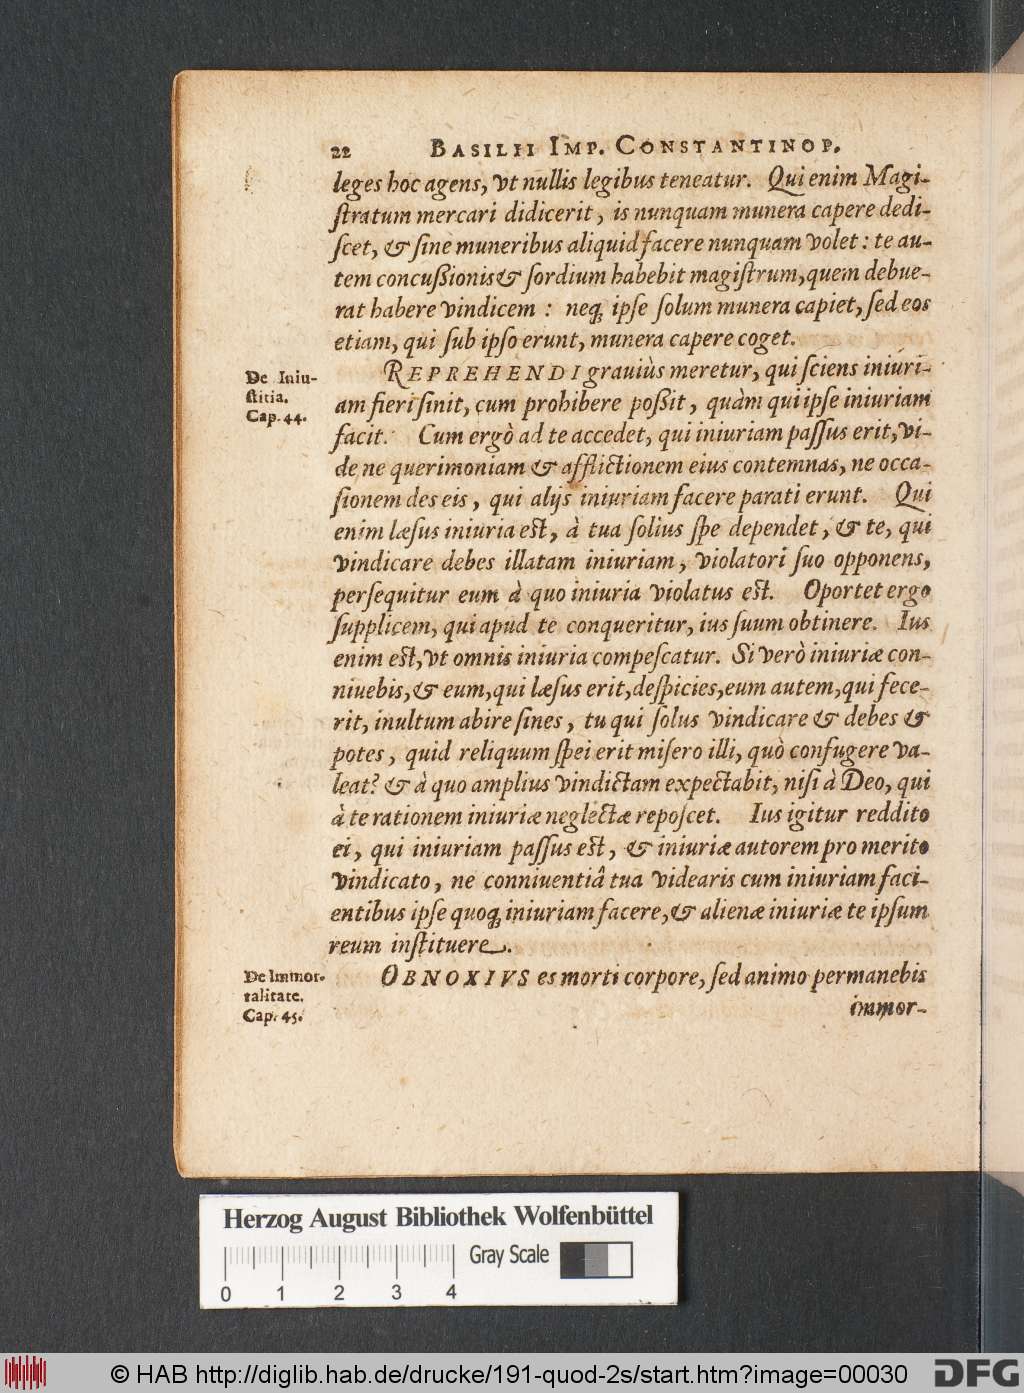 22 BASILII IMP. CONSTANTINOP.
leges hoc agens, vt nullis legibus teneatur. Qui enim Magi-
ſtratum mercari didicerit, is nunquam munera capere dedi-
ſcet, & ſine muneribus aliquid facere nunquam volet: te au-
tem concußionis & ſordium habebit magiſtrum, quem debue-
rat habere vindicem: neq́ ipſe ſolum munera capiet, ſed eos
etiam, qui ſub ipſo erunt, munera capere coget.
De Iniu-
ſtitia.
Cap. 44.
REPREHENDI grauiùs meretur, qui ſciens iniuri-
am fieri ſinit, cum prohibere poßit, quàm qui ipſe iniuriam
facit. Cum ergò ad te accedet, qui iniuriam paſſus erit, vi-
de ne querimoniam & afflictionem eius contemnas, ne occa-
ſionem des eis, qui alijs iniuriam facere parati erunt. Qui
enim læſus iniuria eſt, à tua ſolius ſpe dependet, & te, qui
vindicare debes illatam iniuriam, violatori ſuo opponens,
perſequitur eum à quo iniuria violatus eſt. Oportet ergo
ſupplicem, qui apud te conqueritur, ius ſuum obtinere. Ius
enim eſt, vt omnis iniuria compeſcatur. Si verò iniuriæ con-
niuebis, & eum, qui læſus erit, deſpicies, eum autem, qui fece-
rit, inultum abire ſines, tu qui ſolus vindicare & debes &
potes, quid reliquum ſpei erit miſero illi, quò confugere va-
leat? & à quo amplius vindictam expectabit, niſi à Deo, qui
à te rationem iniuriæ neglectæ repoſcet. Ius igitur reddito
ei, qui iniuriam paſſus eſt, & iniuriæ autorem pro merito
vindicato, ne conniuentiâ tua videaris cum iniuriam faci-
entibus ipſe quoq́ iniuriam facere, & alienæ iniuriæ te ipſum
reum inſtituere.
De Immor-
talitate.
Cap. 45.
OBNOXIVS es morti corpore, ſed animo permanebis
immor-
Herzog August Bibliothek Wolfenbüttel
Gray Scale
0 1 2 3 4
© HAB http://diglib.hab.de/drucke/191-quod-2s/start.htm?image=00030
DFG